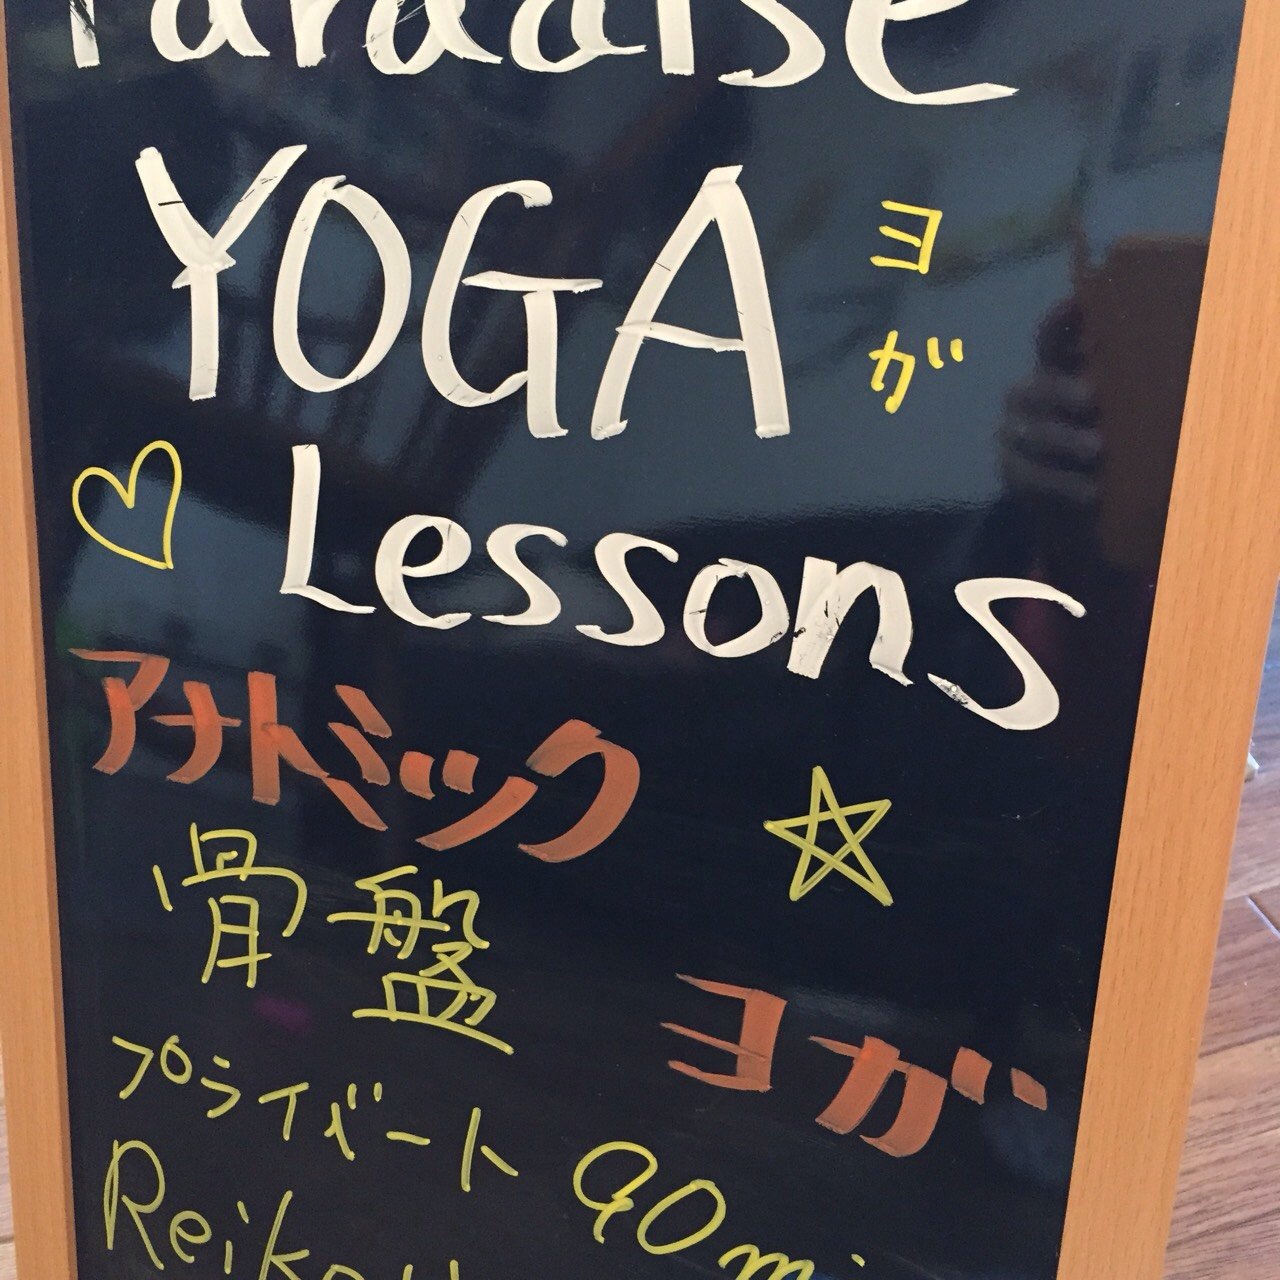 Paradise
YOGA ヨガ
Lessons
アナトミック
骨盤 ヨガ
プライベート 90m